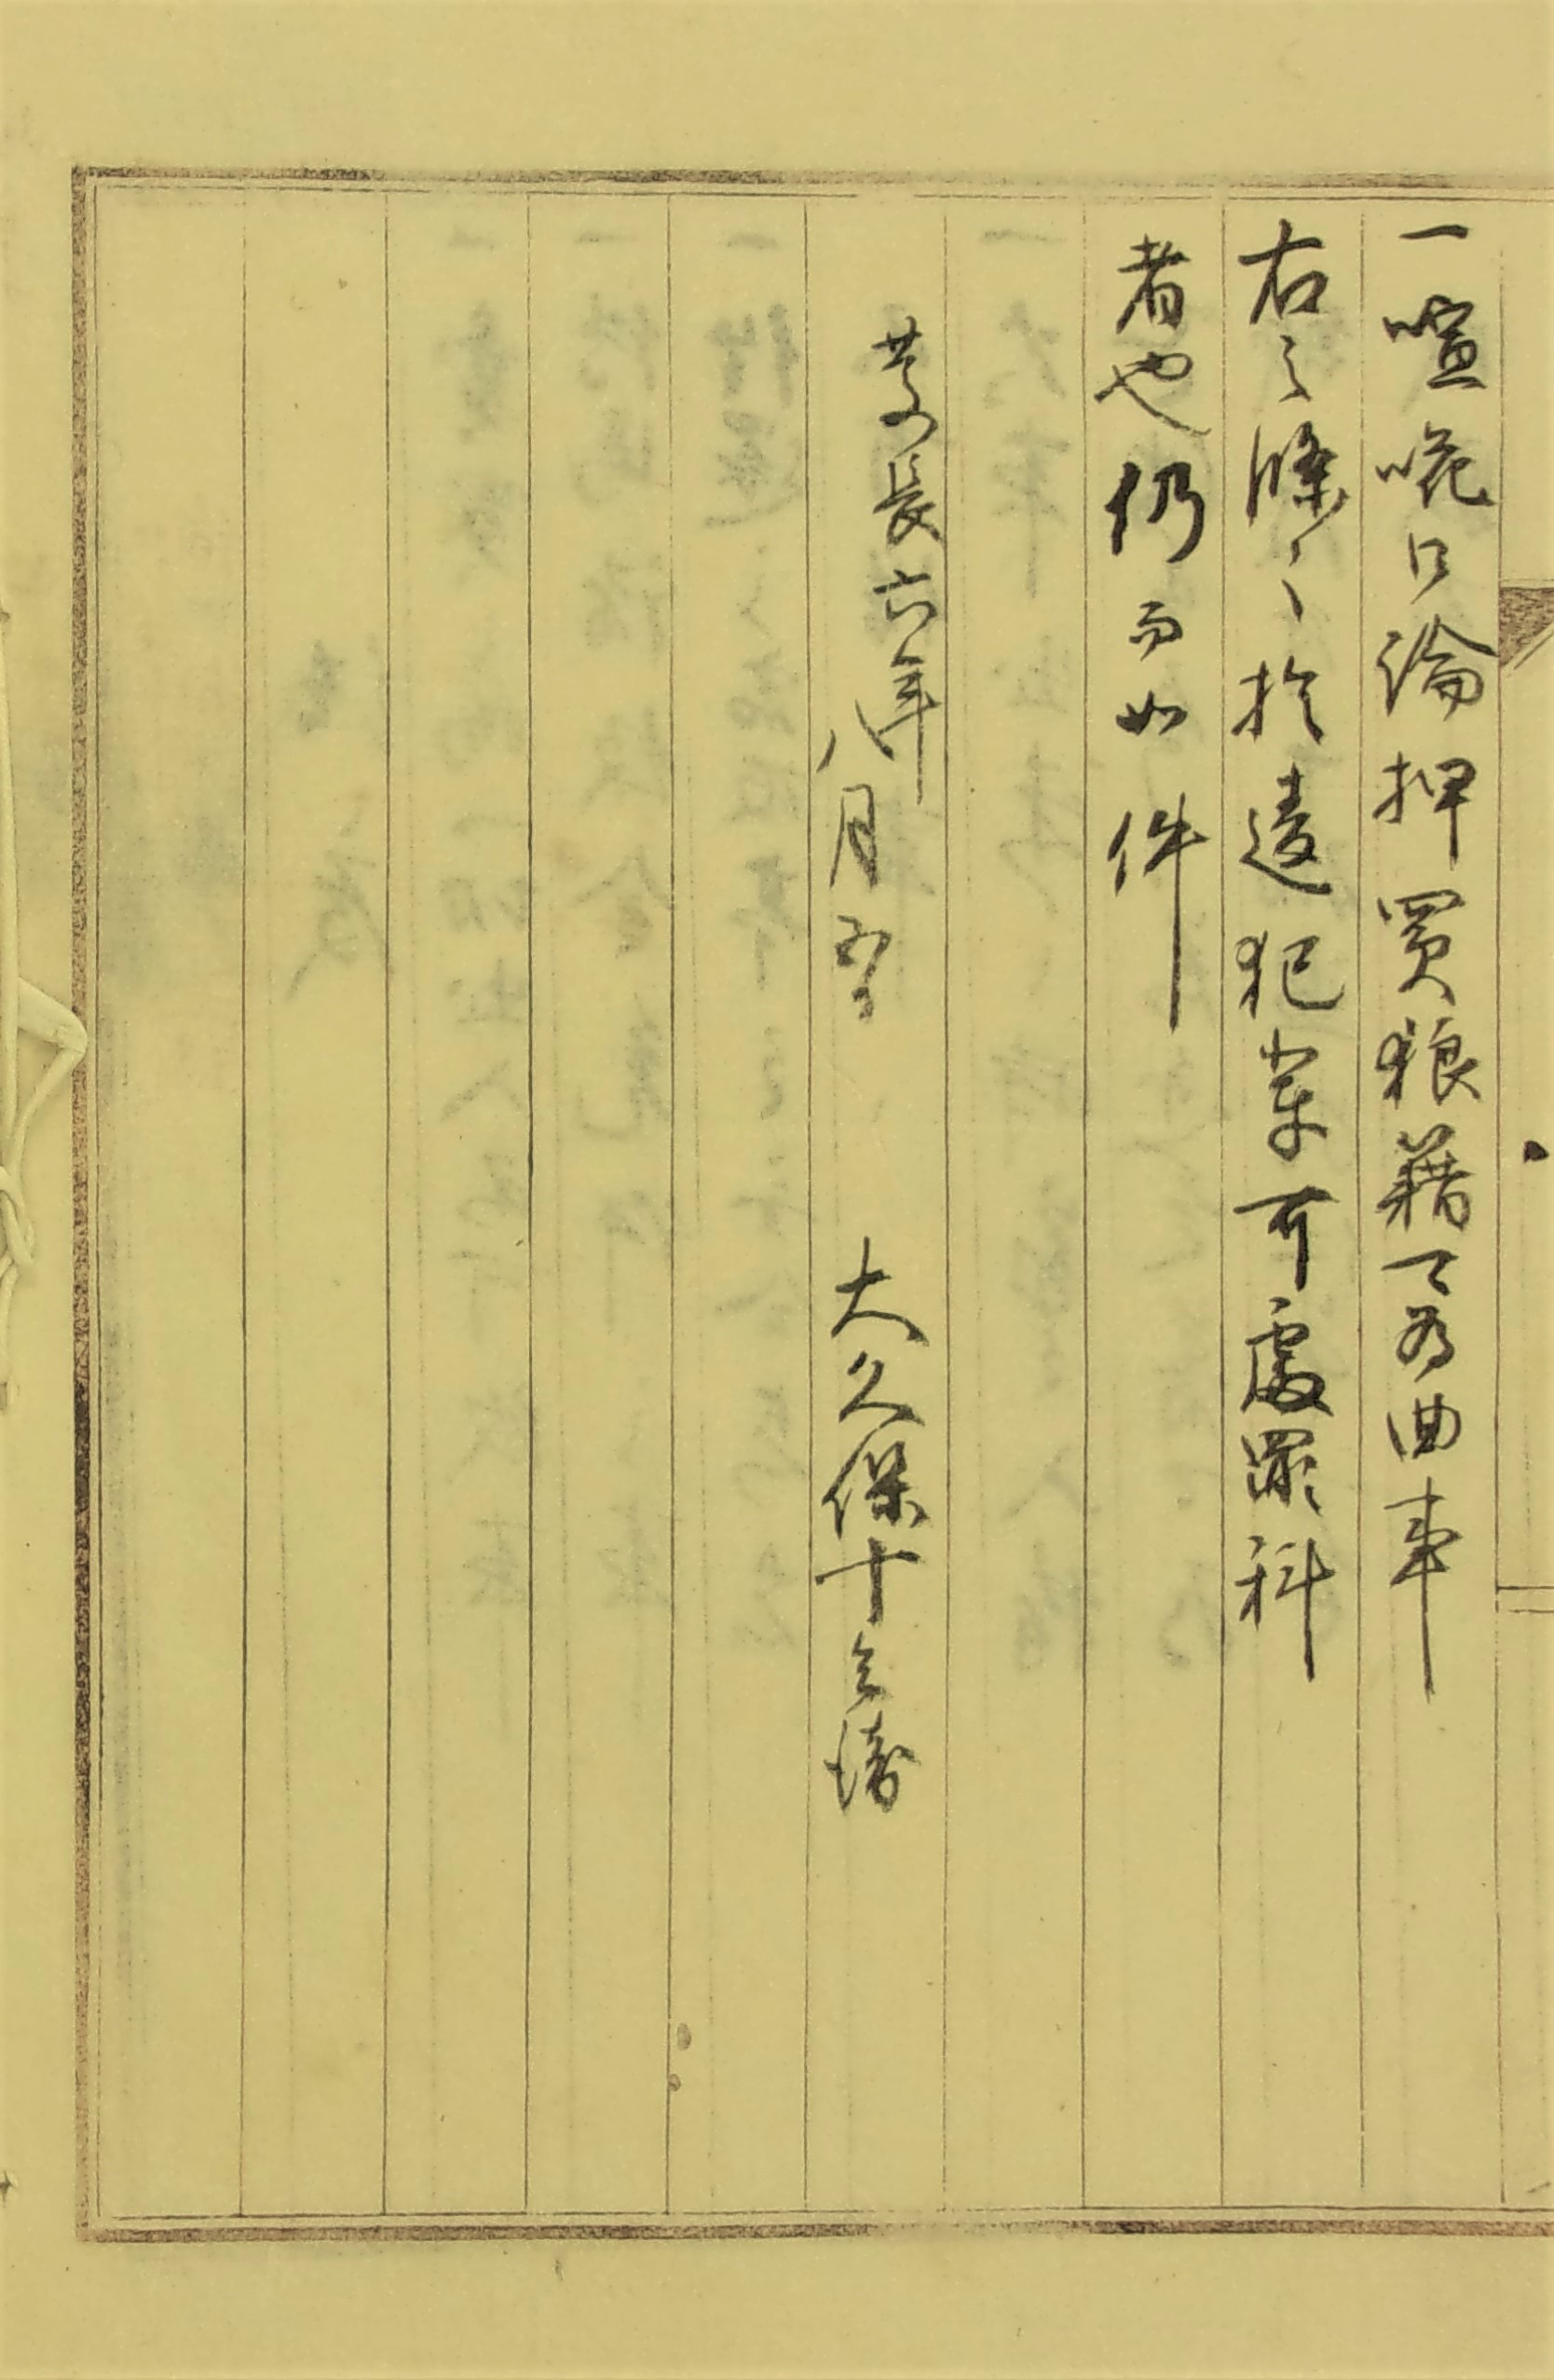 一喧嘩口論押買狼藉可為曲事
右之條々於違犯輩可處罪科
者也仍而如件
慶長六年八月五日　大久保十兵衛